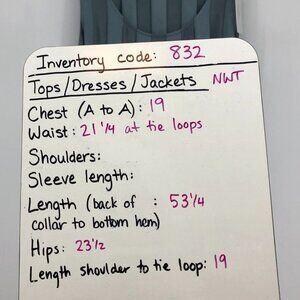 Inventory code: 832
Tops/Dresses/Jackets NWT
Chest (A to A): 19
Waist: 21 1/4 at tie loops
Shoulders:
Sleeve length:
Length (back of : 53 1/4
collar to bottom hem)
Hips: 23 1/2
Length shoulder to tie loop: 19